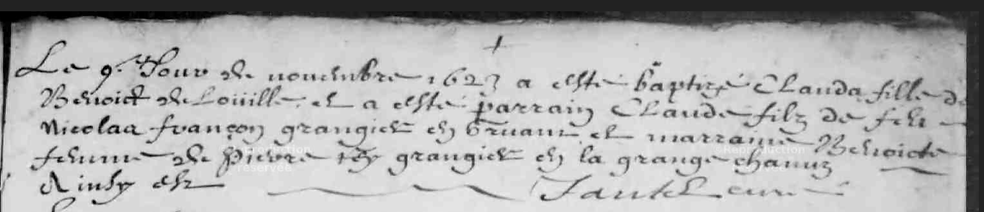 Le 9e Jour de novembre 1623 a esté baptizé Clauda fille de
Benoict de Loüille, et a esté parrain Claude filz de feu
Nicolas françon grangier en bruant et marraine Benoicte
femme de Pierre rey grangier en la grange
Ainsy est curé